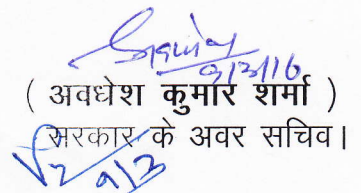 9/3/16
( अवधेश कुमार शर्मा )
सरकार के अवर सचिव।
9/3